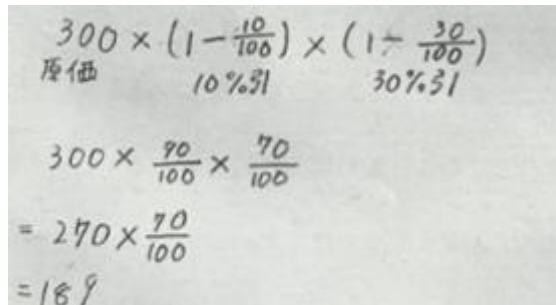 300 × (1 - 10/100) × (1 - 30/100)
原価 10%引 30%引
300 × 90/100 × 70/100
= 270 × 70/100
= 189